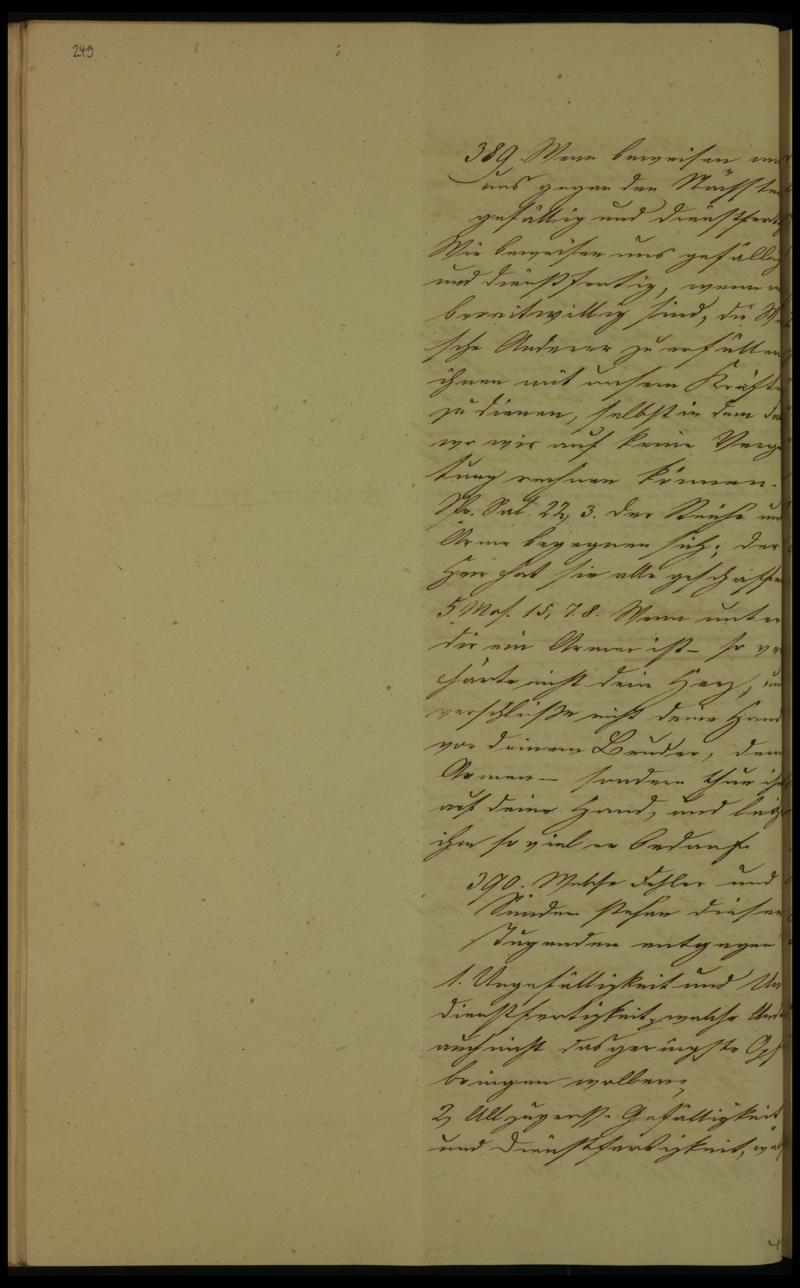 249
389. Wenn beweisen
uns gegen den Nächsten
gefällig und dienstfert
Wir beweisen uns gefällig
und dienstfertig, wenn
bereitwillig sind, die
sche Anderer zu erfüllen
ihnen mit unsern Kräfte
zu dienen, selbst in dem
wo wir auf keine Verge
tung rechnen können.
Spr. Sal. 22, 3. Der Reiche und
Arme begegnen sich; der
Herr hat sie alle geschaffen
5 Mos. 15, 7.8. Wenn unter
dir ein Armer ist – so ver
härte nicht dein Herz, und
verschließe nicht deine Hand
vor deinem Bruder, dem
Armen – sondern thue ihm
auf deine Hand, und leih
ihm so viel er bedarf.
390. Welche Fehler und
Sünden stehen diesen
Tugenden entgegen
1. Ungefälligkeit und Un
dienstfertigkeit, welche
auch nicht das geringste Opf
bringen wollen;
2, Allzugrosse Gefälligkeit
und Dienstfertigkeit,